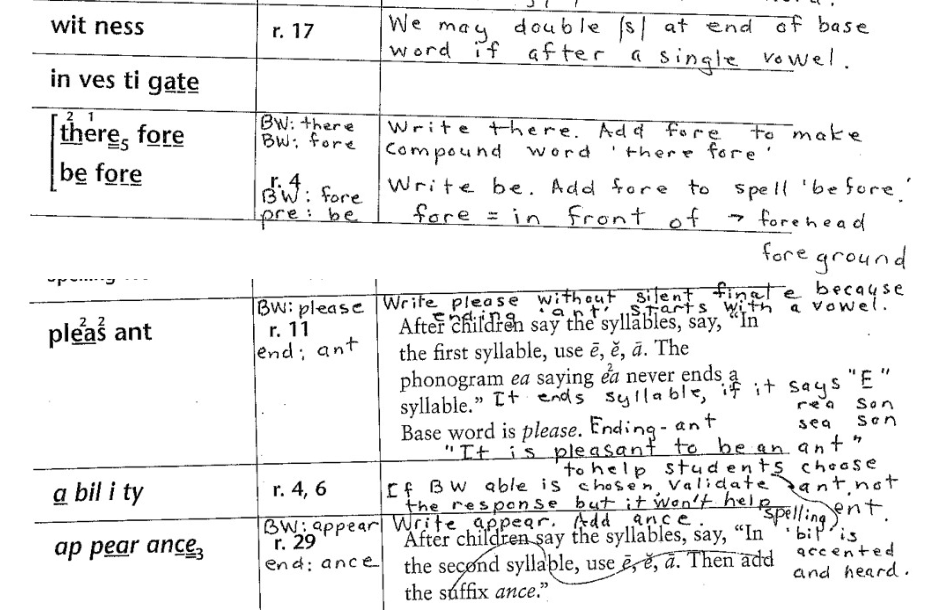 wit ness
r. 17
We may double |s| at end of base
word if after a single vowel.
in ves ti gate
2 1
there5 fore
BW: there
BW: fore
Write there. Add fore to make
Compound word 'there fore'
be fore
r. 4
BW: fore
pre: be
Write be. Add fore to spell 'before.'
fore = in front of → forehead
foreground
pleas ant
2 2
BW: please
r. 11
end: ant
Write please without silent final e because
ending 'ant' starts with a vowel.
After children say the syllables, say, “In
the first syllable, use ē, ĕ, ā. The
phonogram ea saying ea never ends a
2
syllable.” It ends syllable, if it says "E"
rea son
sea son
Base word is please. Ending - ant
"It is pleasant to be an ant"
to help students choose
ant, not
ent.
a bil i ty
r. 4, 6
If BW able is chosen, validate
the response but it won't help
spelling
'bil' is
accented
and heard.
ap pear ance3
BW: appear
r. 29
end: ance
Write appear. Add ance.
After children say the syllables, say, “In
the second syllable, use ē, ĕ, ā. Then add
the suffix ance.”